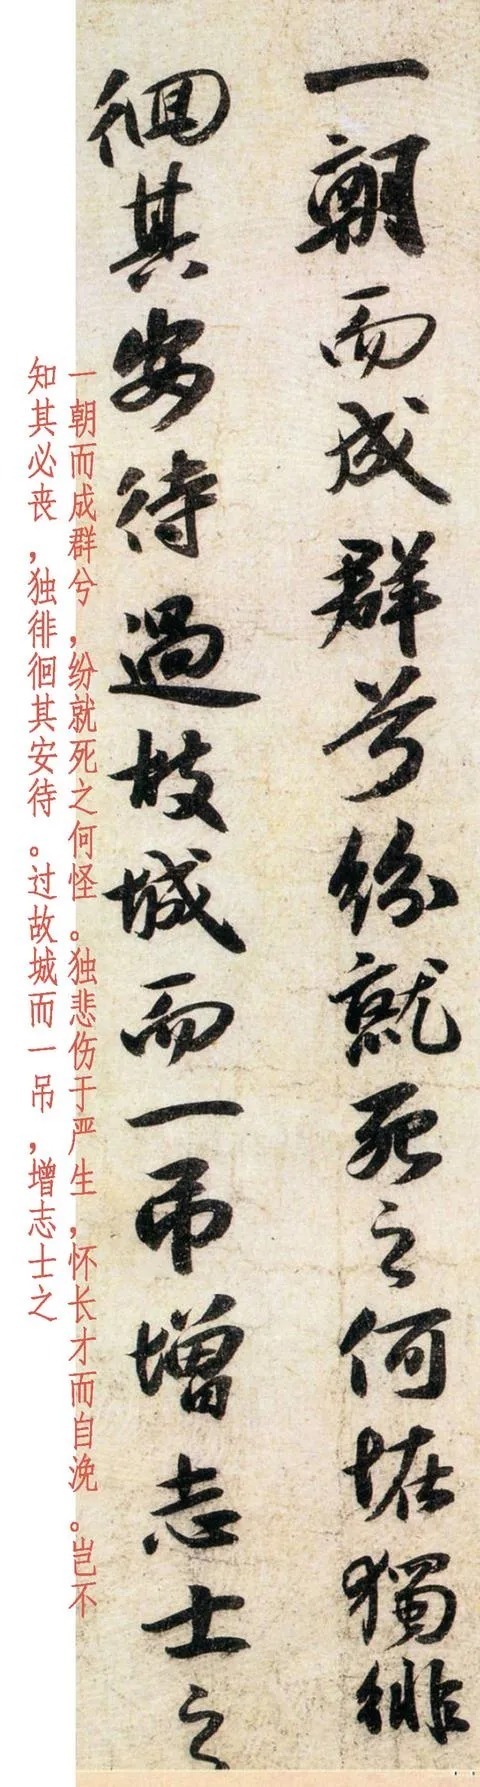 一朝而成群兮紛就死之何恠獨徘
徊其安待過故城而一吊增志士之
一朝而成群兮，纷就死之何怪。独悲伤于严生，怀长才而自浼。岂不
知其必丧，独徘徊其安待。过故城而一吊，增志士之